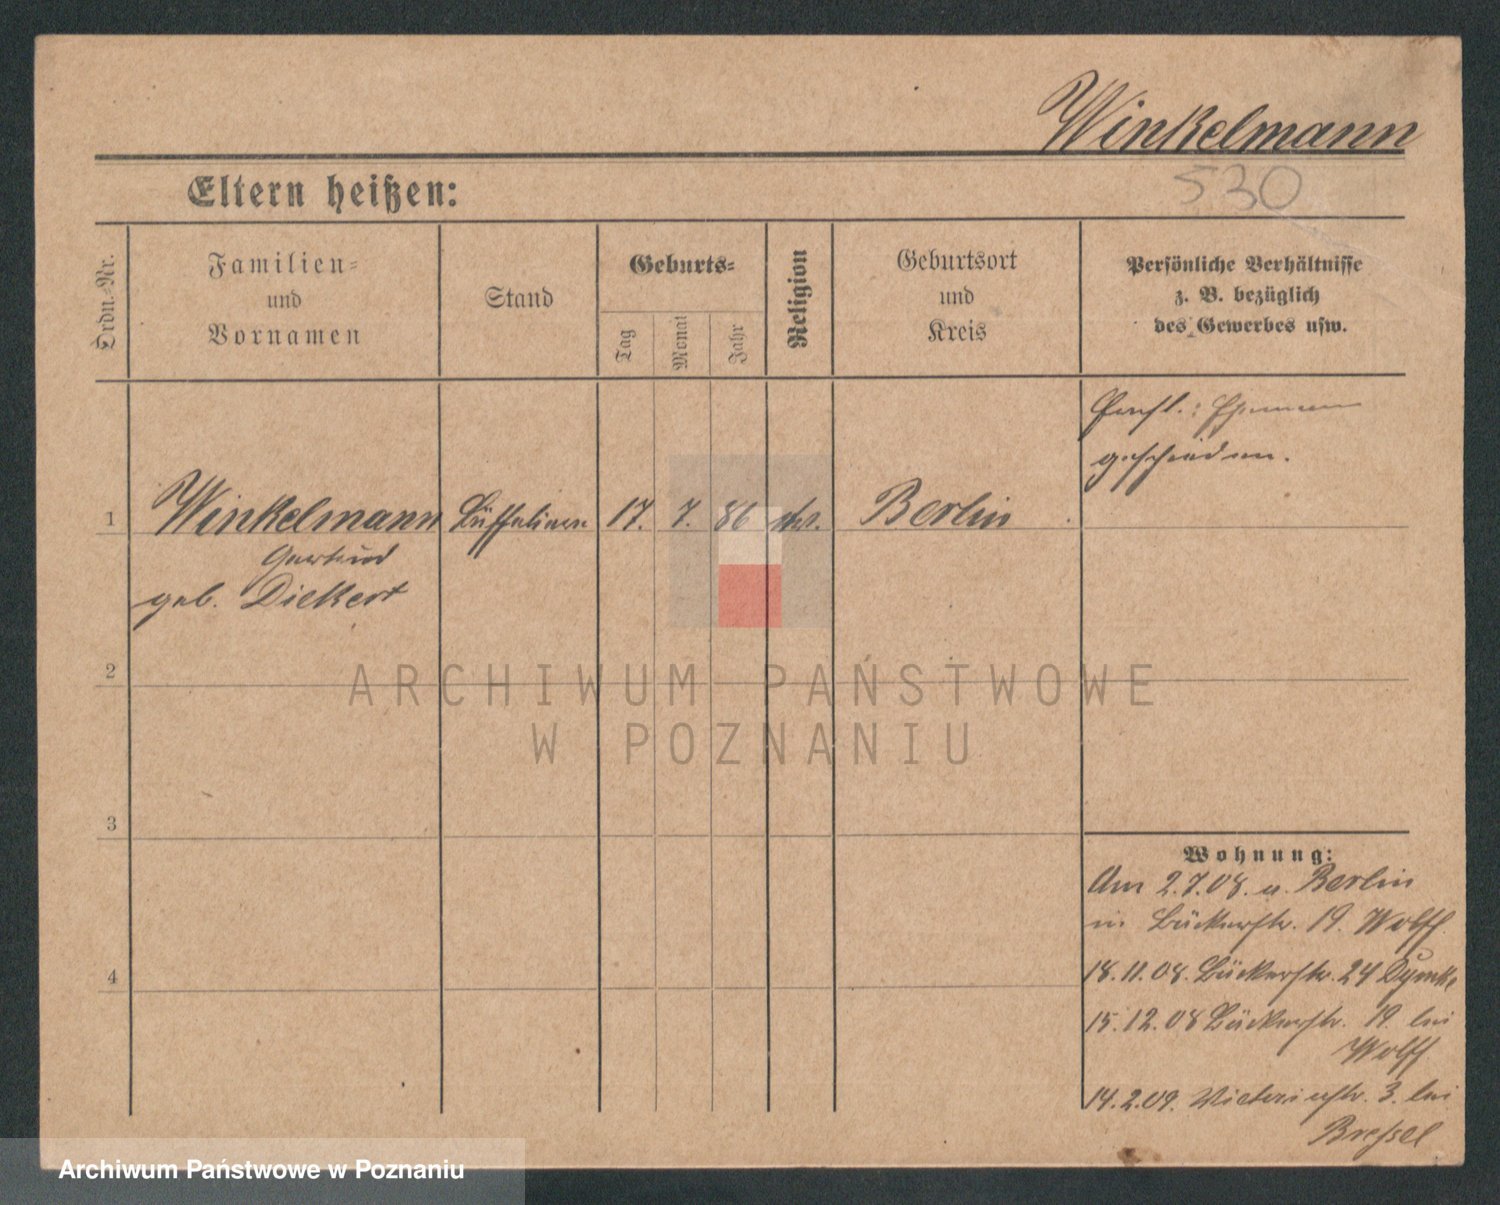 Winkelmann
530
Eltern heißen:
Ordn.-Nr.
Familien-
und
Vornamen
Stand
Geburts-
Tag
Monat
Jahr
Religion
Geburtsort
und
Kreis
Persönliche Verhältnisse
z. B. bezüglich
des Gewerbes usw.
geschieden.
1 Winkelmann Büffetiere 17. 7. 86 Berlin
Gertrud
geb. Diekert
2
3
4
ARCHIWUM PAŃSTWOWE
W POZNANIU
Wohnung:
Am 2.7.08. v. Berlin
in Bäckerstr. 19. Wolff
18.11.08. Bäckerstr. 24 Dymke
15.12.08 Bäckerstr. 19. bei
Wolff
14.2.09. Victoriastr. 3. bei
Bressel
Archiwum Państwowe w Poznaniu